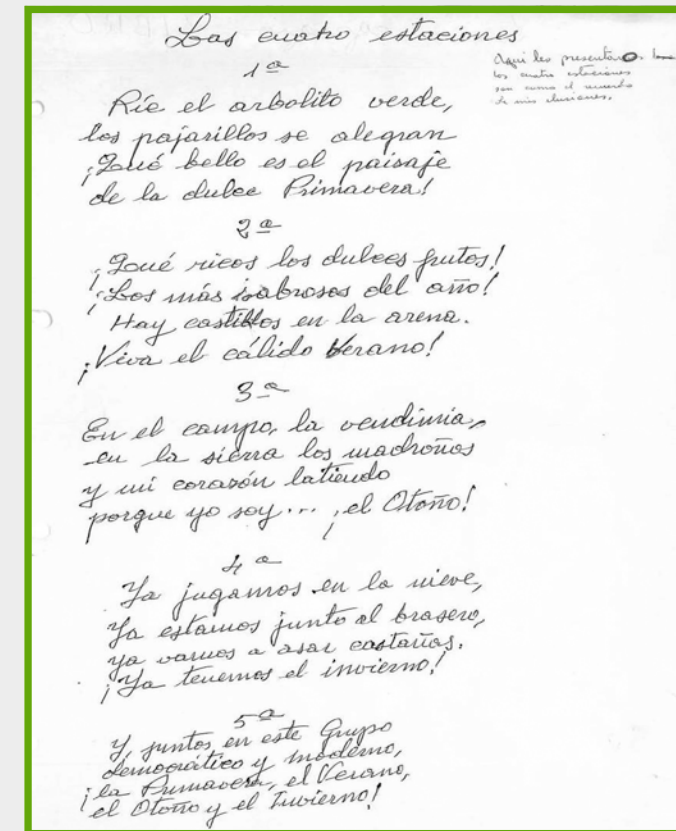 Las cuatro estaciones
Aqui les presentamos
las cuatro estaciones
son como el recuerdo
de mis ilusiones.
1ª
Ríe el arbolito verde,
los pajarillos se alegran
¡Qué bello es el paisaje
de la dulce Primavera!
2ª
¡Qué ricos los dulces frutos!
¡Los más sabrosos del año!
Hay castillos en la arena.
¡Viva el cálido Verano!
3ª
En el campo, la vendimia,
en la sierra los madroños
y mi corazón latiendo
porque yo soy... ¡el Otoño!
4ª
Ya jugamos en la nieve,
Ya estamos junto al brasero,
ya vamos a asar castañas.
¡Ya tenemos el invierno!
5ª
Y, juntos, en este Grupo
democrático y moderno,
¡la Primavera, el Verano,
el Otoño y el Invierno!